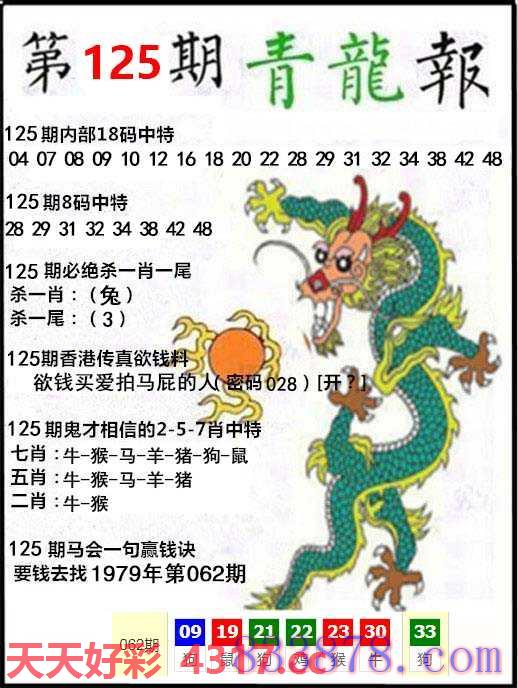 第125期青龍報
125期内部18码中特
04 07 08 09 10 12 16 18 20 22 28 29 31 32 34 38 42 48
125期8码中特
28 29 31 32 34 38 42 48
125期必绝杀一肖一尾
杀一肖：（兔）
杀一尾：（3）
125期香港传真欲钱料
欲钱买爱拍马屁的人(密码028)[开?]
125期鬼才相信的2-5-7肖中特
七肖：牛-猴-马-羊-猪-狗-鼠
五肖：牛-猴-马-羊-猪
二肖：牛-猴
125期马会一句赢钱诀
要钱去找1979年第062期
062期 09 19 21 22 23 30 33
狗 鼠 狗 鸡 猴 牛 狗
天天好彩